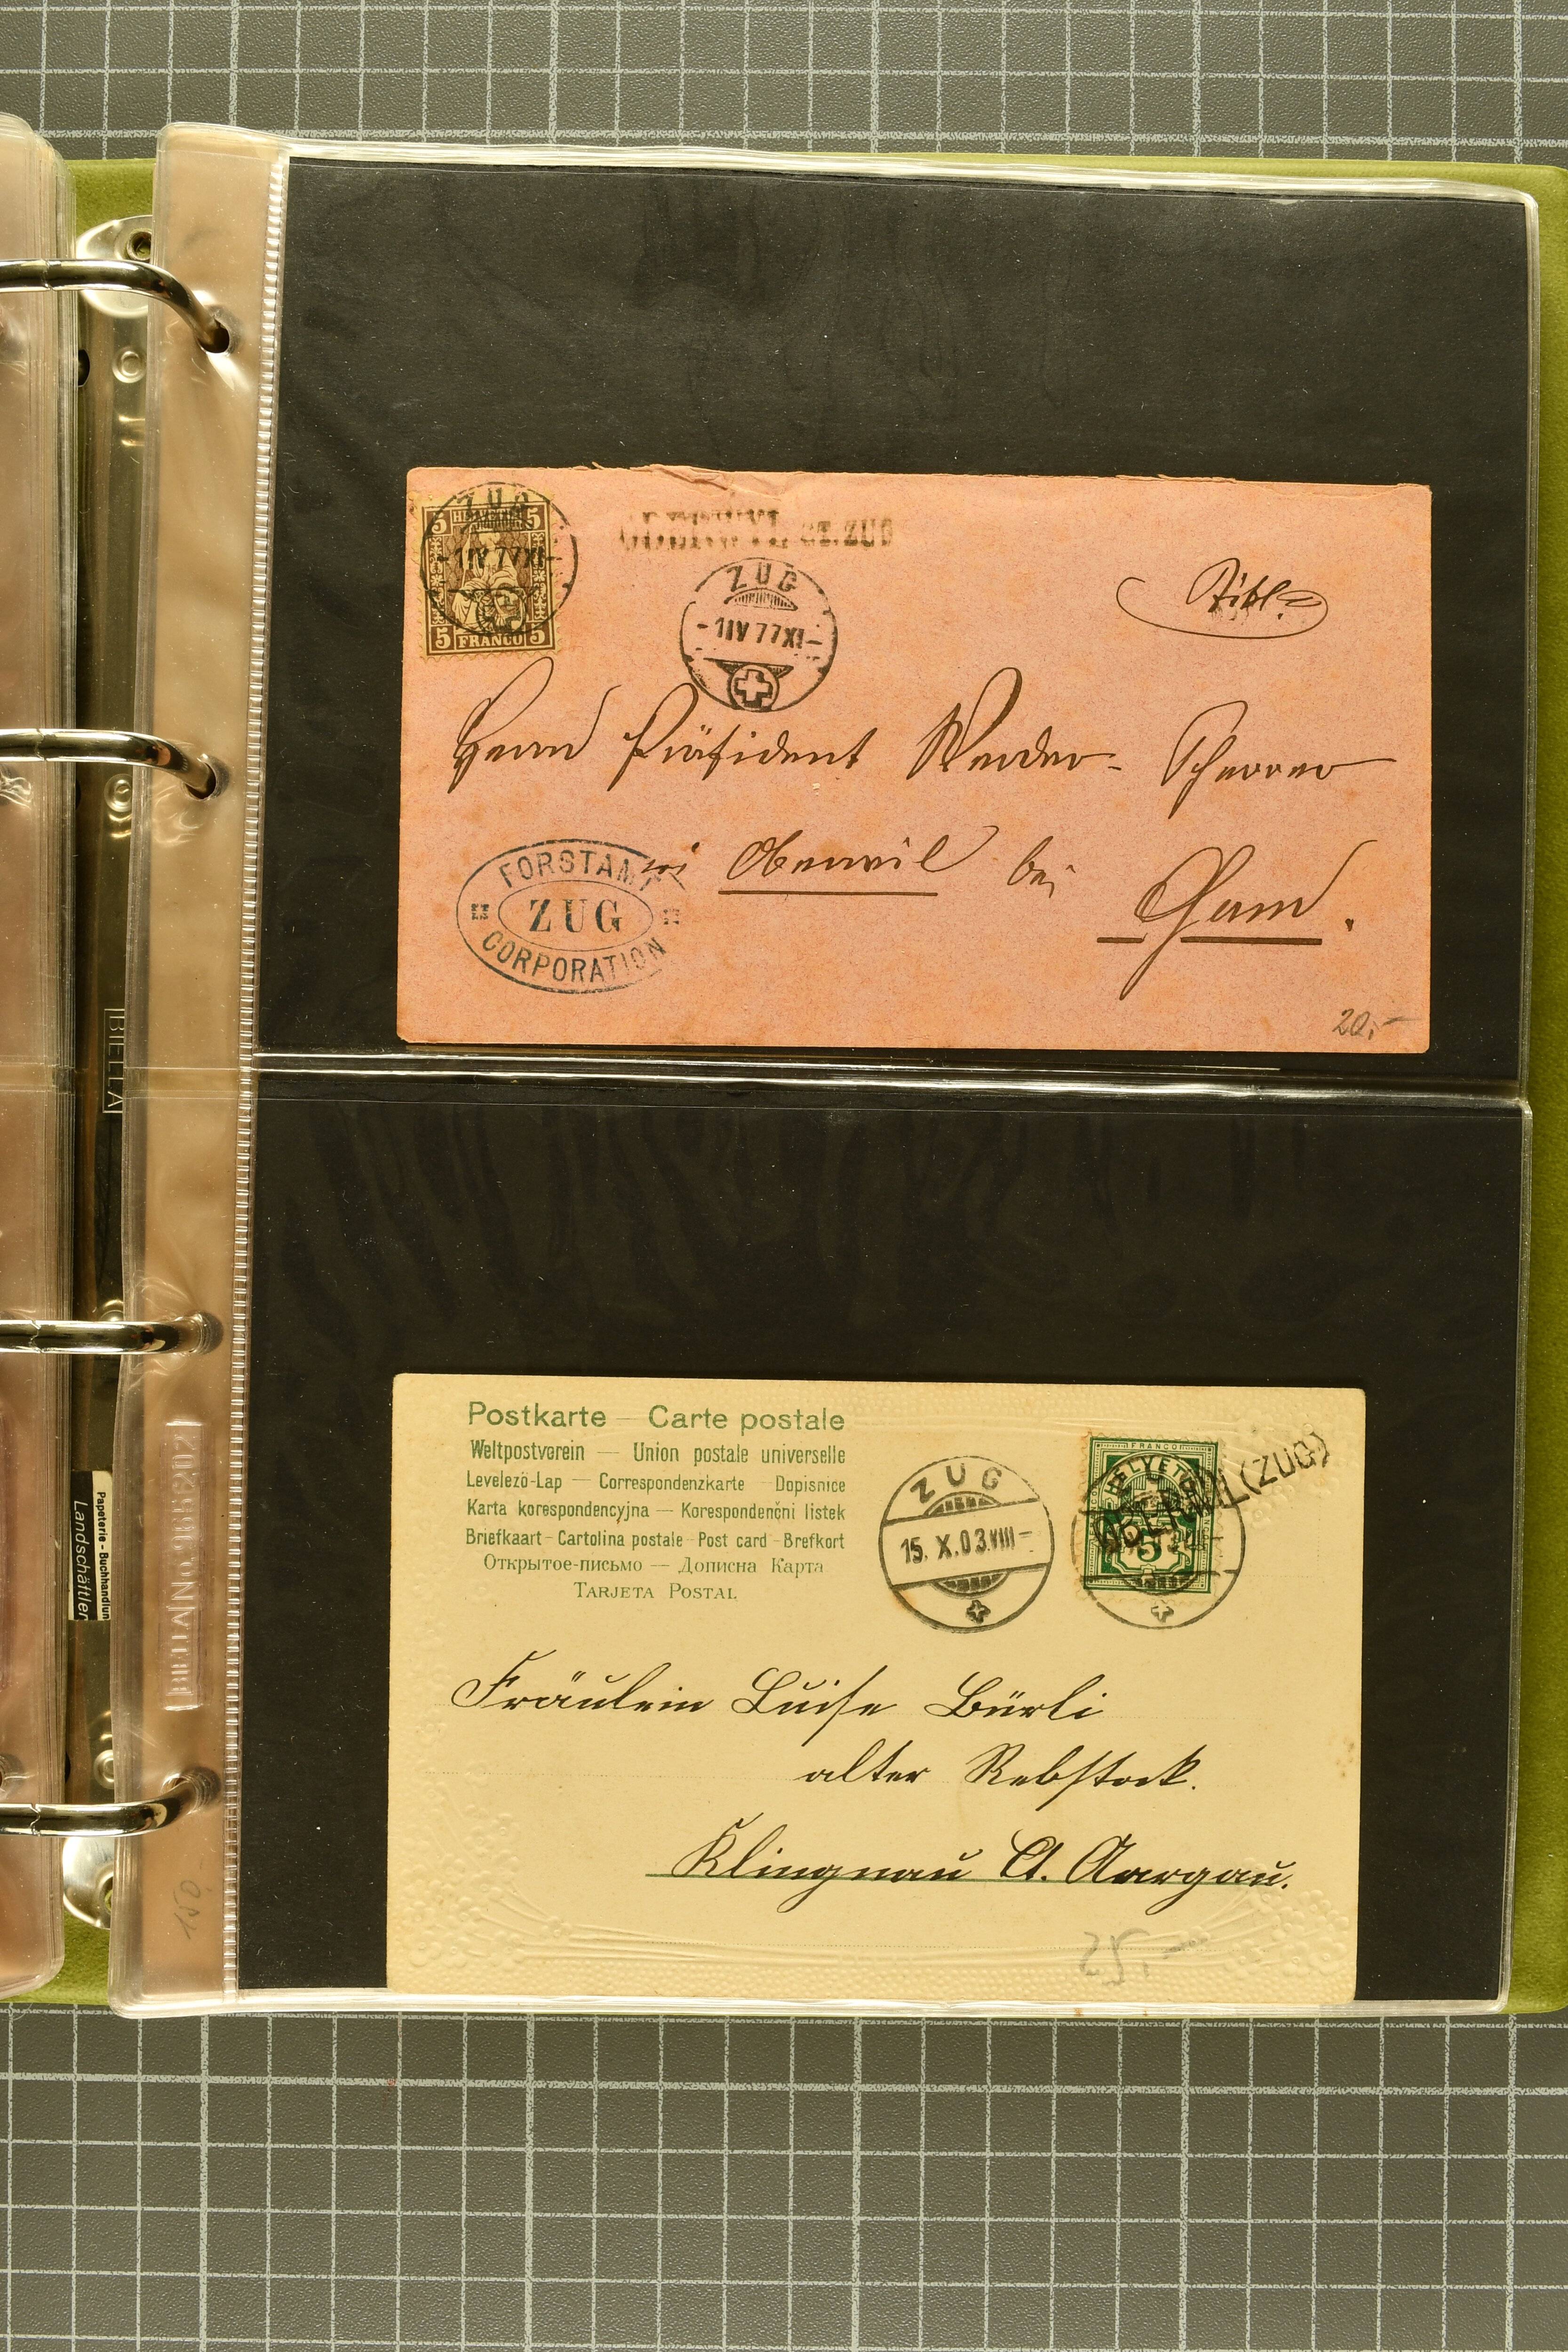 ZUG
5 5
-1IV 77XI-
5 FRANCO 5
CT. ZUG
ZUG
-1IV 77XI-
Herrn Präsident Werder-Scherrer
in Obenwil bei
Cham.
FORSTAMT
ZUG
CORPORATION
20.-
Postkarte – Carte postale
Weltpostverein — Union postale universelle
Levelezö-Lap — Correspondenzkarte – Dopisnice
Karta korespondencyjna — Korespondenční listek
Briefkaart – Cartolina postale – Post card – Brefkort
Открытое-письмо — Дописна Карта
TARJETA POSTAL
ZUG
15. X.03.VIII-
FRANCO
HELVETIA
5
(ZUG)
Fräulein Luise Bürli
alter Rebstock.
Klingnau Ct. Aargau.
25.-
BIELLA
BIELLA No. 166202
Papeterie - Buchhandlun
Landschäftler